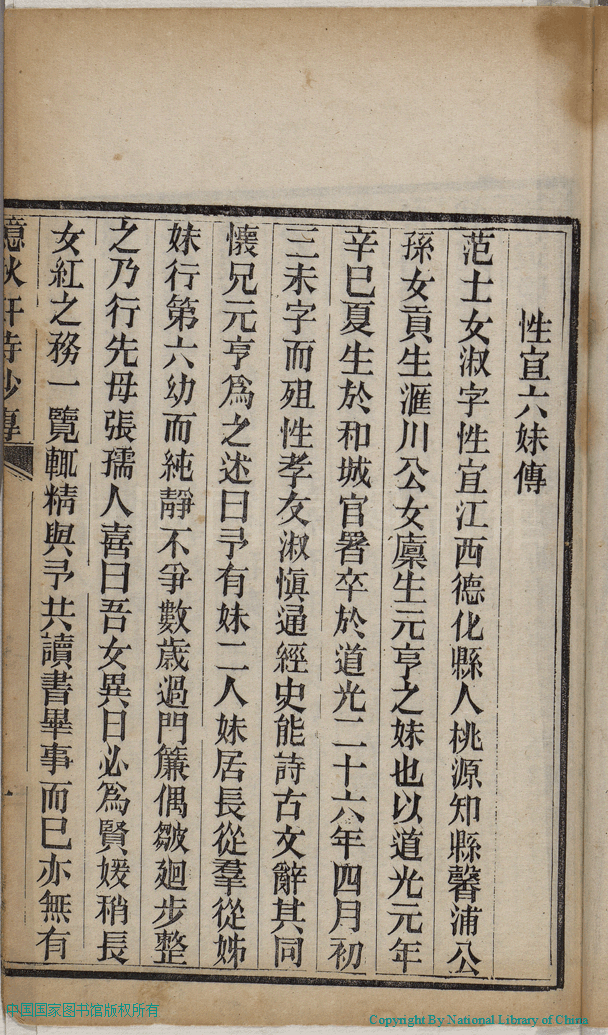 性宜六妹傳
范士女淑字性宜江西德化縣人桃源知縣馨浦公
孫女貢生滙川公女廩生元亨之妹也以道光元年
辛巳夏生於和城官署卒於道光二十六年四月初
三未字而殂性孝友淑慎通經史能詩古文辭其同
懷兄元亨為之述曰予有妹二人妹居長從羣從姊
妹行第六幼而純靜不爭數歲過門簾偶皺迴步整
之乃行先母張孺人喜曰吾女異日必為賢媛稍長
女紅之務一覽輒精與予共讀書畢事而已亦無有
憶秋軒詩抄傳
一
中国国家图书馆版权所有
Copyright By National Library of China